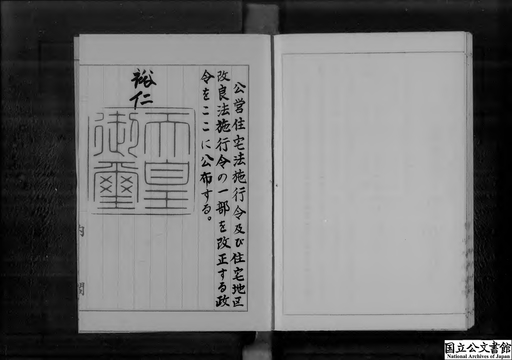 公営住宅法施行令及び住宅地区
改良法施行令の一部を改正する政
令をここに公布する。
裕仁
天皇
御璽
内閣
国立公文書館
National Archives of Japan